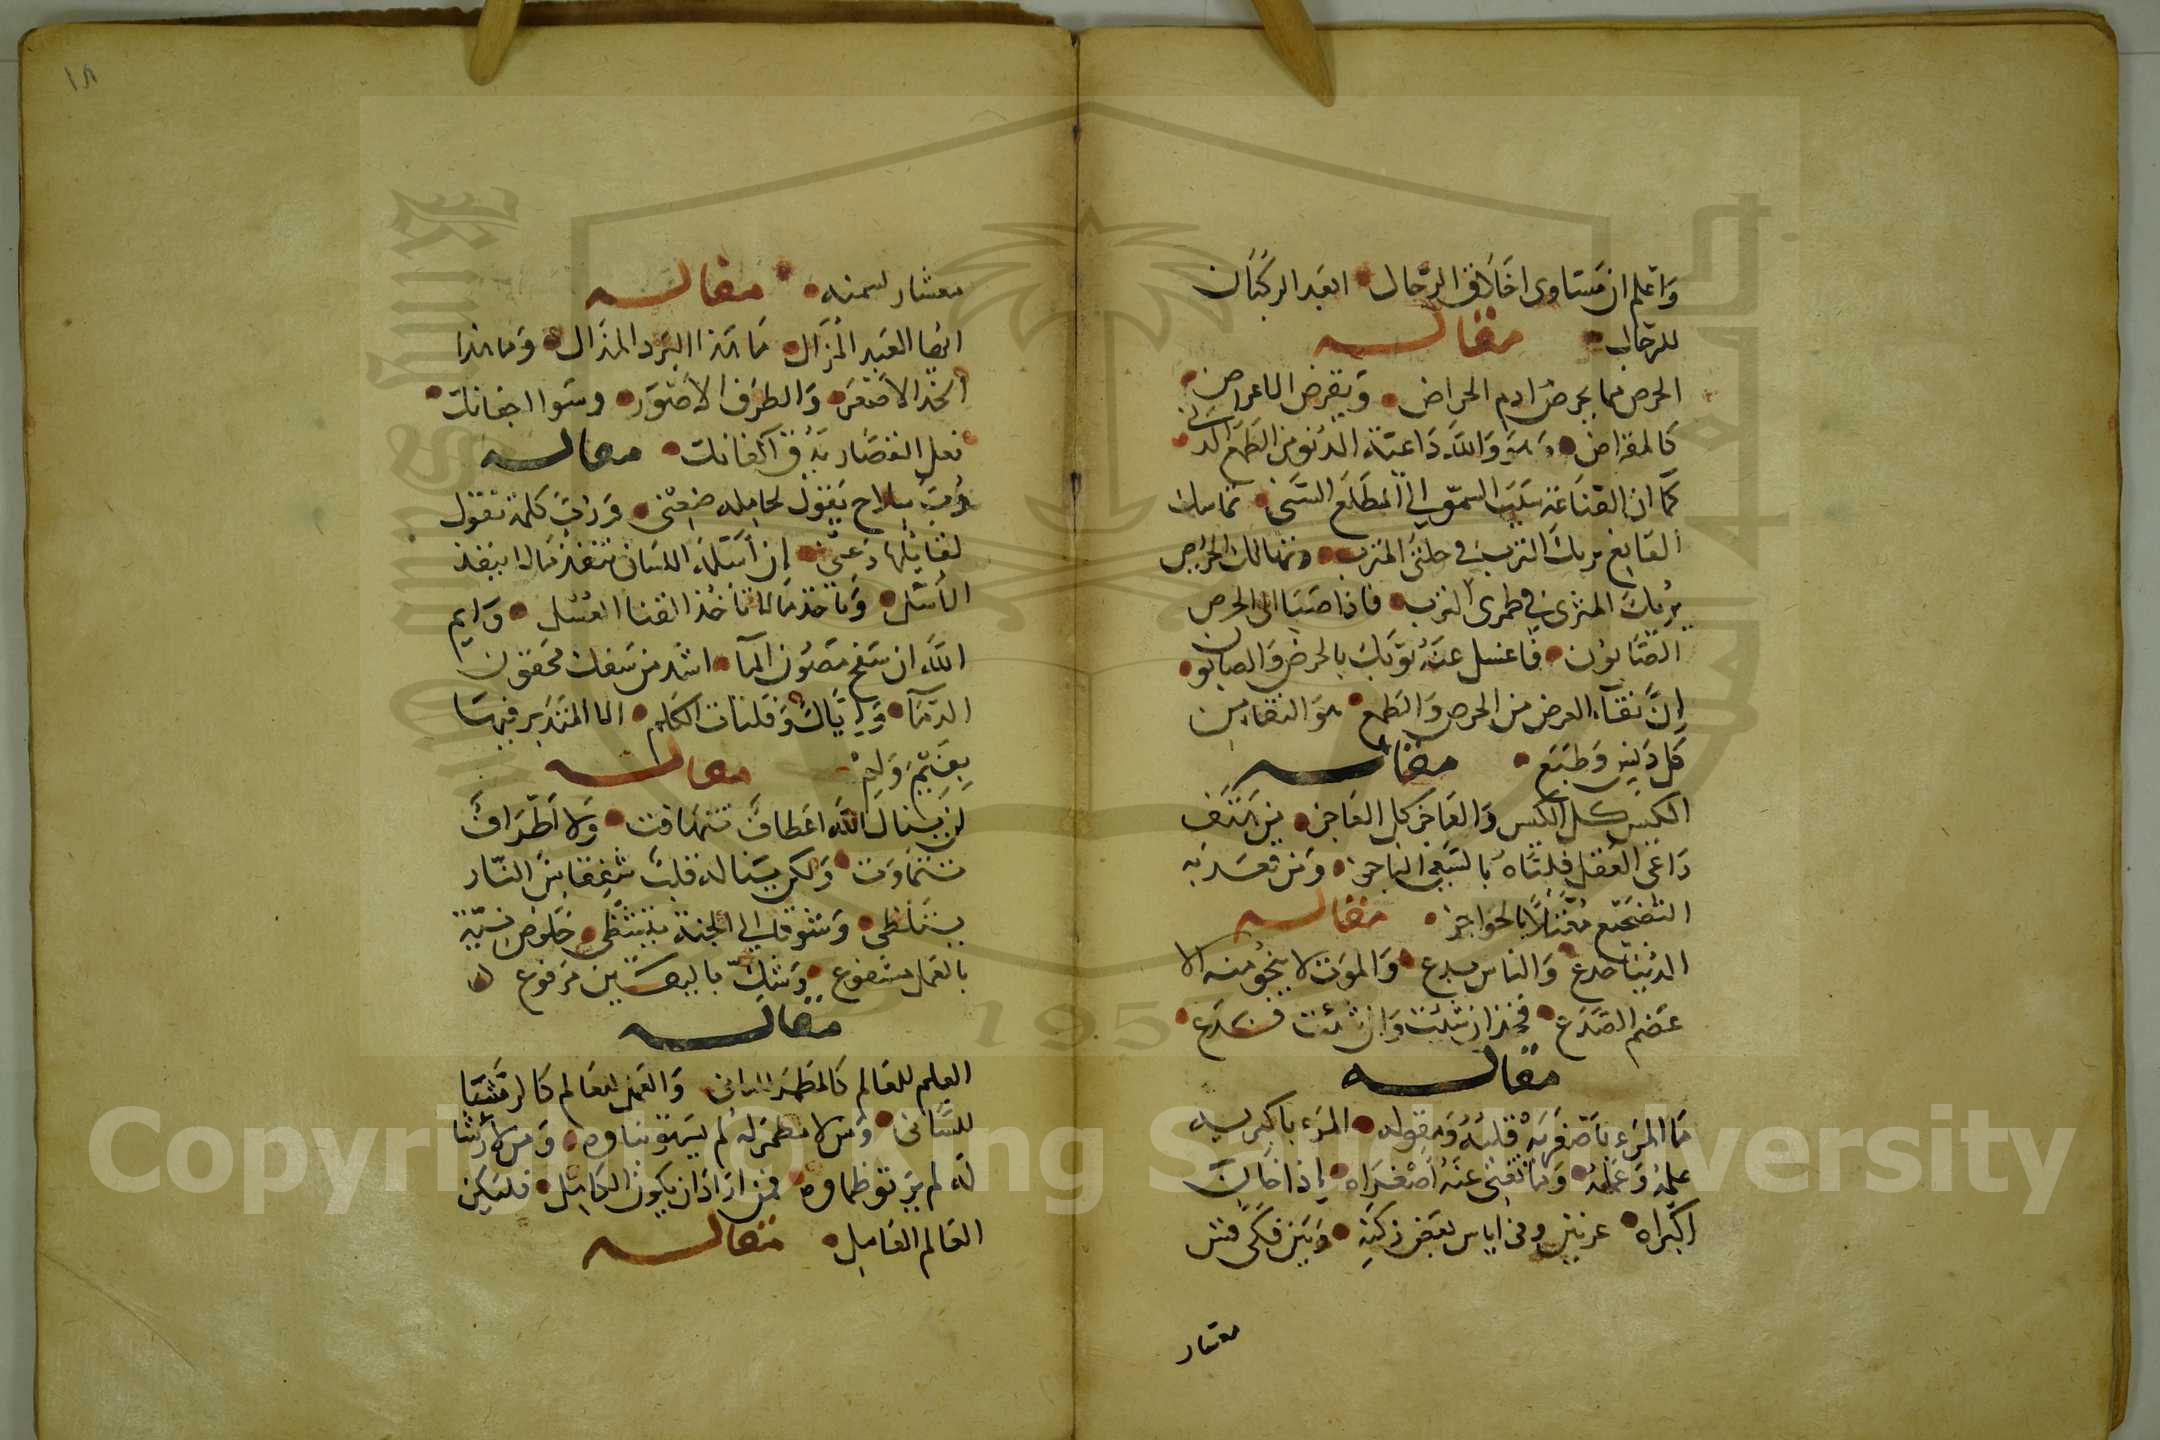 واعلم ان مساوى اخلاق الرجال ابعد الركبان
للرجال مقاله
الحرص مما يحرض اديم الحراض ويقرض الاعراض
كالمقراض هو والله داعية الدنو من الطمع الدنى
كما ان القناعة سبب السمو الى المطلع السنى تماسك
القانع يريك الترب فى حلتى المترب وتهالك الحريص
يريك المثرى فى طمرى الترب فاذا صبا الى الحرص
الصابون فاغسل عنه ثوبك بالحرض والصابون
ان نقاء العرض من الحرص والطمع هو النقاء من
كل دنس وطبع مقاله
الكيس كل الكيس والعاجز كل العاجز من هتف
داعى العقل فلباه بالسعى الناجز ومن قعد به
التضجع معتلا بالحواجز مقاله
الدنيا خدع والناس بدع والموت لا ينجو منه الا
عصم الصدع فخذ ان شئت وان شئت فدع
مقاله
ما المرء باصغريه قلبه ومقوله المرء باكبريه
علمه وعمله وما تغنى عنه اصغراه اذا خانه
اكبراه عرنين وفى اياس بعض زكنه وبين فكى قس
معشار
١٨
معشار لسنه مقاله
ايها العبد المزال ما هذا البرد المذال وما هذا
الخد الاصعر والطرف الاصور وسوا اجفانك
فعل القصار يدق اكفانك مقاله
رب سلاح يقول لحامله ضعنى ورب كلمة تقول
لقائلها دعنى ان اسلة اللسان تنفذ ما لا ينفذ
الاسل وتاخذ ما لا تاخذ القنا العسل وايم
الله ان سفح مصون الما اشد من سفك محقون
الدما واياك وفلتات الكلم الا المتدبر فيها
بفيم ولم مقاله
لن ينال الله اعطاف تتهافت ولا اطراف
تتماوت ولكن يناله قلب شفقا من النار
يتلظى وشوقا الى الجنة يتشظى خلوص نية
بالعمل مشفوع وشك باليقين مرفوع
مقاله
العلم للعالم كالمطمر للبانى والعمل للعالم كالرشا
للسانى ومن لا مطمر له لم يستو بناوه ومن لا رشا
له لم يرتو ظماوه فمن اراد ان يكون الكامل فليكن
العالم العامل مقاله
Copyright © King Saud University
1957